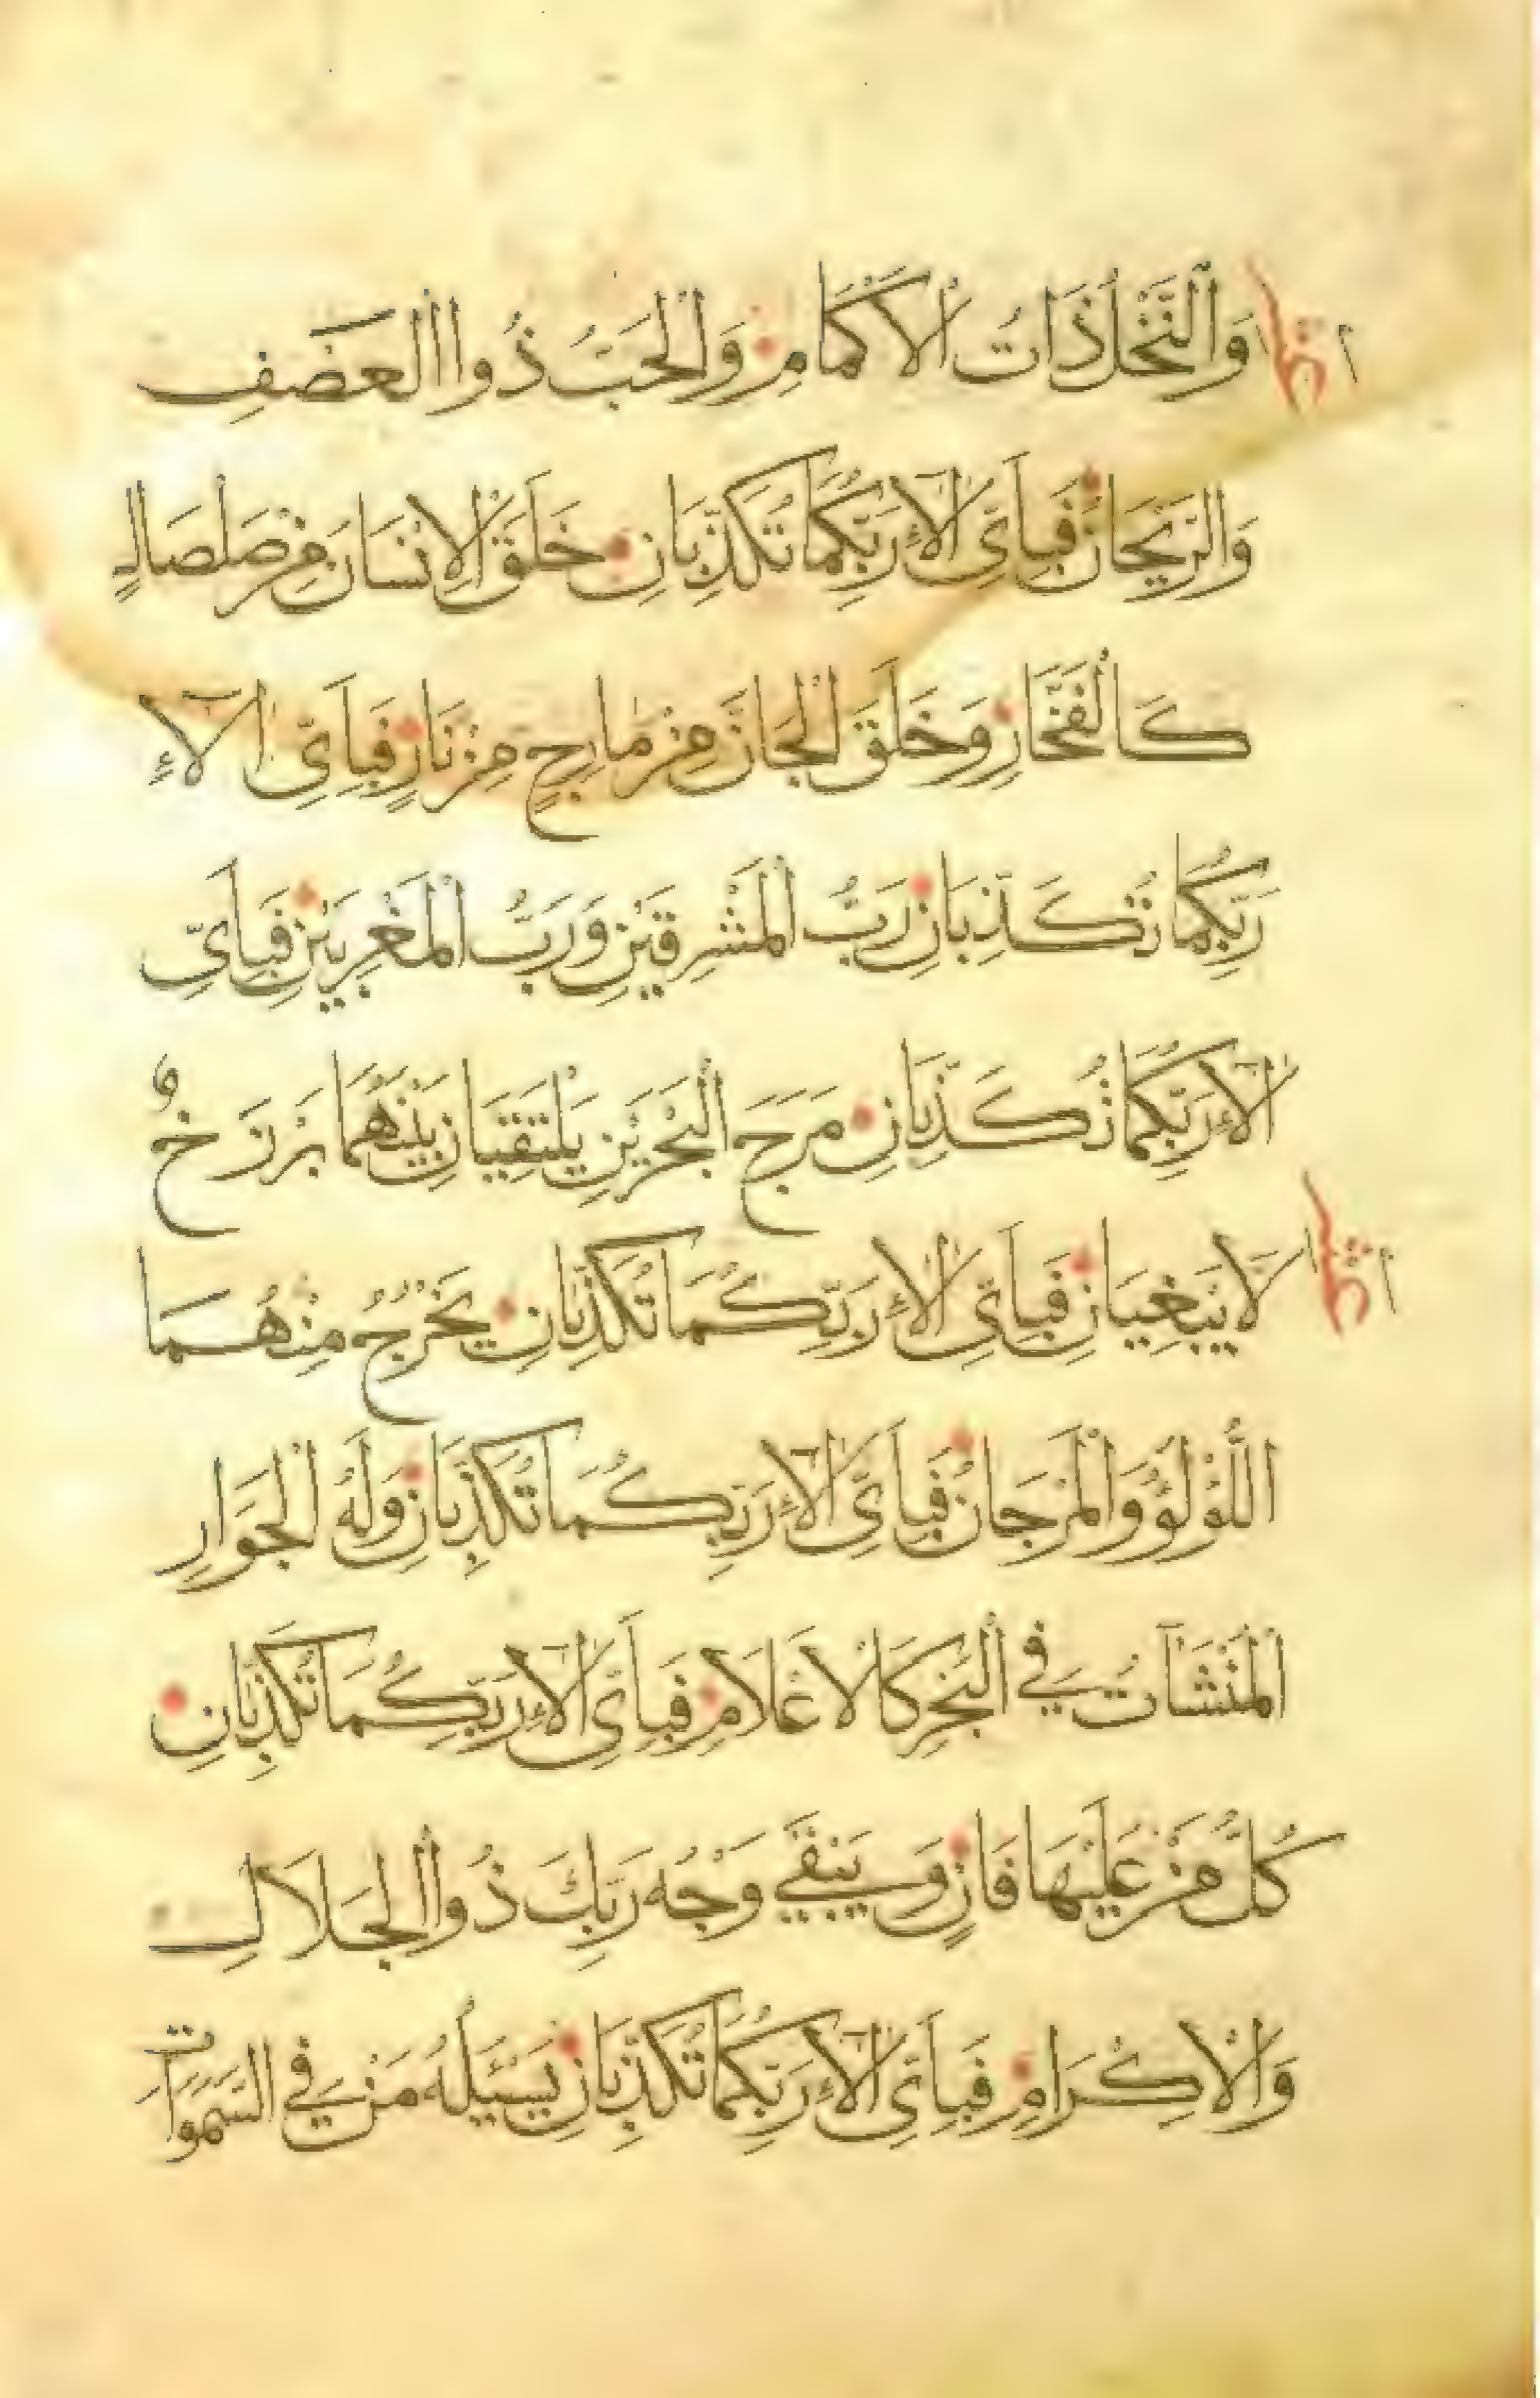 وَالنَّخْلُ ذَاتُ الْأَكْمَامِ وَالْحَبُّ ذُوا الْعَصْفِ
وَالرَّيْحَانُ فَبِأَيِّ آلَاءِ رَبِّكُمَا تُكَذِّبَانِ خَلَقَ الْإِنْسَانَ مِنْ صَلْصَالٍ
كَالْفَخَّارِ وَخَلَقَ الْجَانَّ مِنْ مَارِجٍ مِنْ نَارٍ فَبِأَيِّ آلَاءِ
رَبِّكُمَا تُكَذِّبَانِ رَبُّ الْمَشْرِقَيْنِ وَرَبُّ الْمَغْرِبَيْنِ فَبِأَيِّ
آلَاءِ رَبِّكُمَا تُكَذِّبَانِ مَرَجَ الْبَحْرَيْنِ يَلْتَقِيَانِ بَيْنَهُمَا بَرْزَخٌ
لَا يَبْغِيَانِ فَبِأَيِّ آلَاءِ رَبِّكُمَا تُكَذِّبَانِ يَخْرُجُ مِنْهُمَا
اللُّؤْلُؤُ وَالْمَرْجَانُ فَبِأَيِّ آلَاءِ رَبِّكُمَا تُكَذِّبَانِ وَلَهُ الْجَوَارِ
الْمُنْشَآتُ فِي الْبَحْرِ كَالْأَعْلَامِ فَبِأَيِّ آلَاءِ رَبِّكُمَا تُكَذِّبَانِ
كُلُّ مَنْ عَلَيْهَا فَانٍ وَيَبْقَى وَجْهُ رَبِّكَ ذُوا الْجَلَالِ
وَالْإِكْرَامِ فَبِأَيِّ آلَاءِ رَبِّكُمَا تُكَذِّبَانِ يَسْئَلُهُ مَنْ فِي السَّمٰوَاتِ